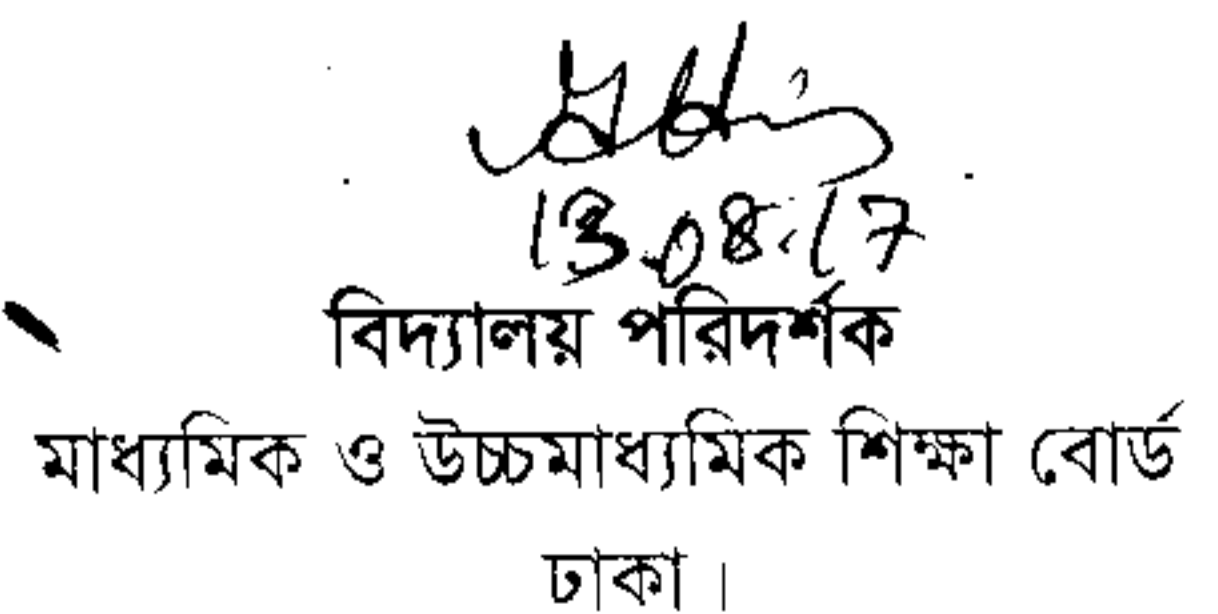 13.08.17
বিদ্যালয় পরিদর্শক
মাধ্যমিক ও উচ্চমাধ্যমিক শিক্ষা বোর্ড
ঢাকা।